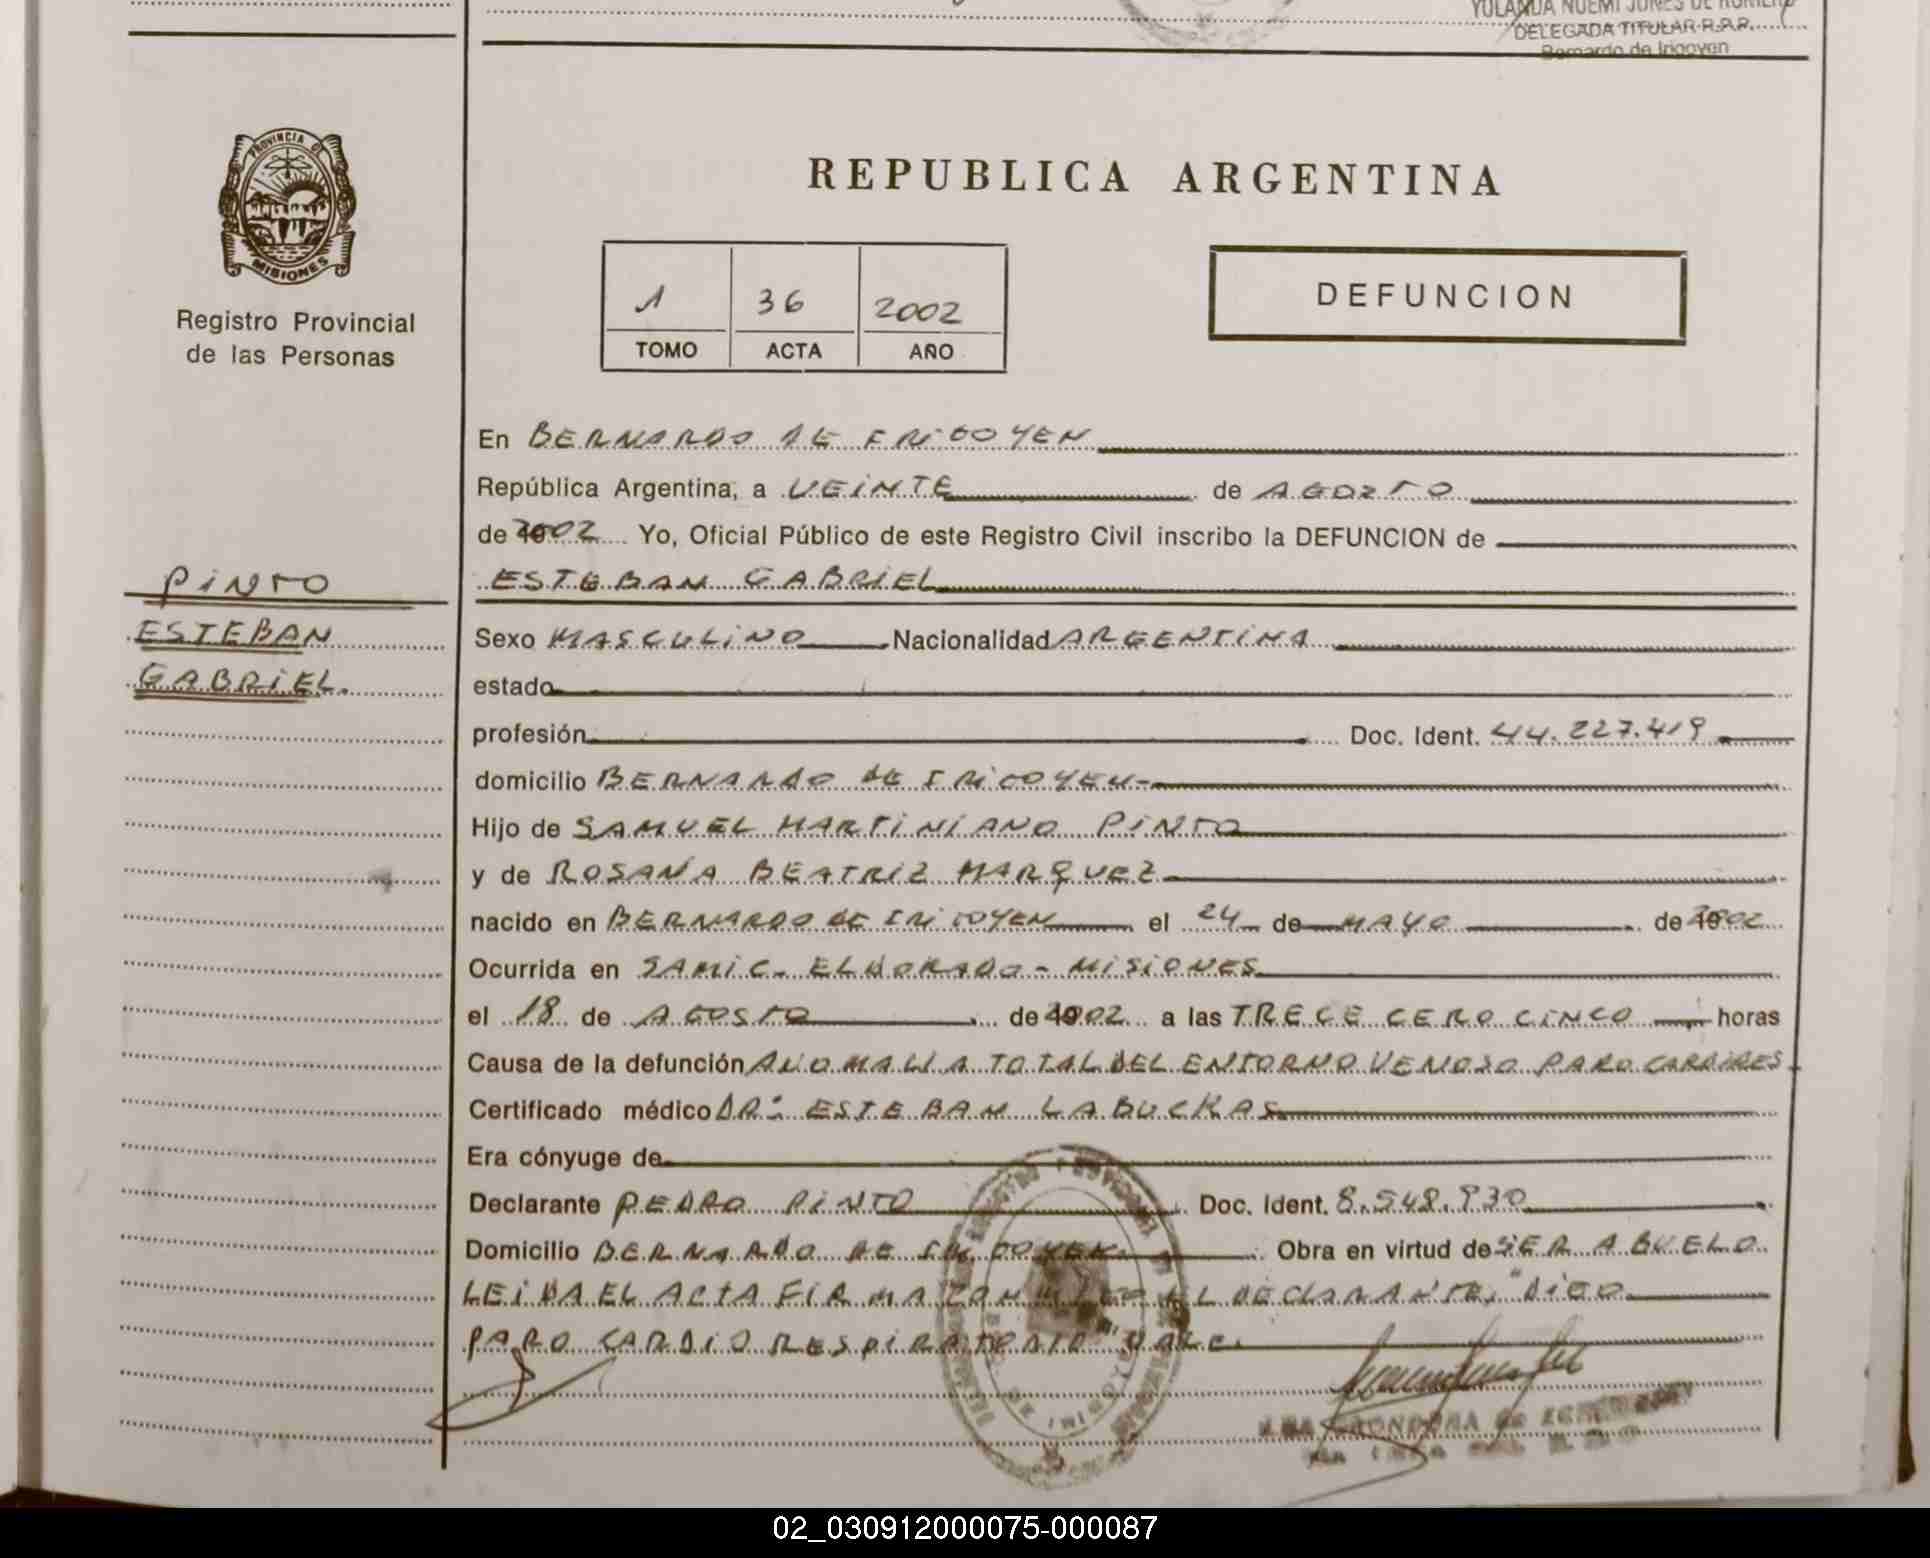 YOLANDA NOEMI JONES DE
DELEGADA TITULAR R.P.P.
Bernardo de Irigoyen
PROVINCIA DE
MISIONES
Registro Provincial
de las Personas
REPUBLICA ARGENTINA
1 36 2002
TOMO ACTA AÑO
DEFUNCION
En BERNARDO DE IRIGOYEN
República Argentina, a VEINTE de AGOSTO
de 2002 Yo, Oficial Público de este Registro Civil inscribo la DEFUNCION de
ESTEBAN GABRIEL
PINTO
ESTEBAN
GABRIEL.
Sexo MASCULINO Nacionalidad ARGENTINA
estado
profesión Doc. Ident. 44.227.419
domicilio BERNARDO DE IRIGOYEN-
Hijo de SAMUEL MARTINIANO PINTO
y de ROSANA BEATRIZ MARQUEZ
nacido en BERNARDO DE IRIGOYEN el 24 de MAYO de 2002
Ocurrida en SAMIC. ELDORADO - MISIONES
el 18 de AGOSTO de 2002 a las TRECE CERO CINCO horas
Causa de la defunción ANOMALIA TOTAL DEL ENTORNO VENOSO PARO CARDIRES-
Certificado médico DR: ESTEBAN LABUCKAS
Era cónyuge de
Declarante PEDRO PINTO Doc. Ident. 8.548.930
Domicilio BERNARDO DE IRIGOYEN. Obra en virtud de SER ABUELO
LEIDA EL ACTA FIRMA CONMIGO EL DECLARANTE, "DIGO
PARO CARDIO RESPIRATORIO" VALE.
02_030912000075-000087